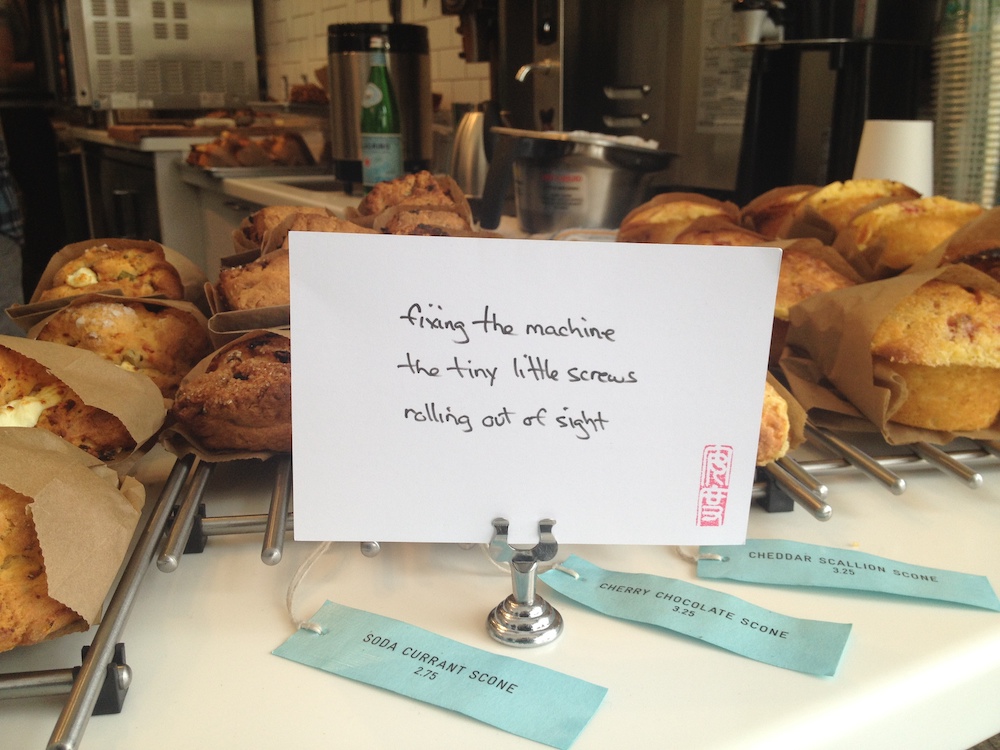 fixing the machine
the tiny little screws
rolling out of sight
SODA CURRANT SCONE
2.75
CHERRY CHOCOLATE SCONE
3.25
CHEDDAR SCALLION SCONE
3.25